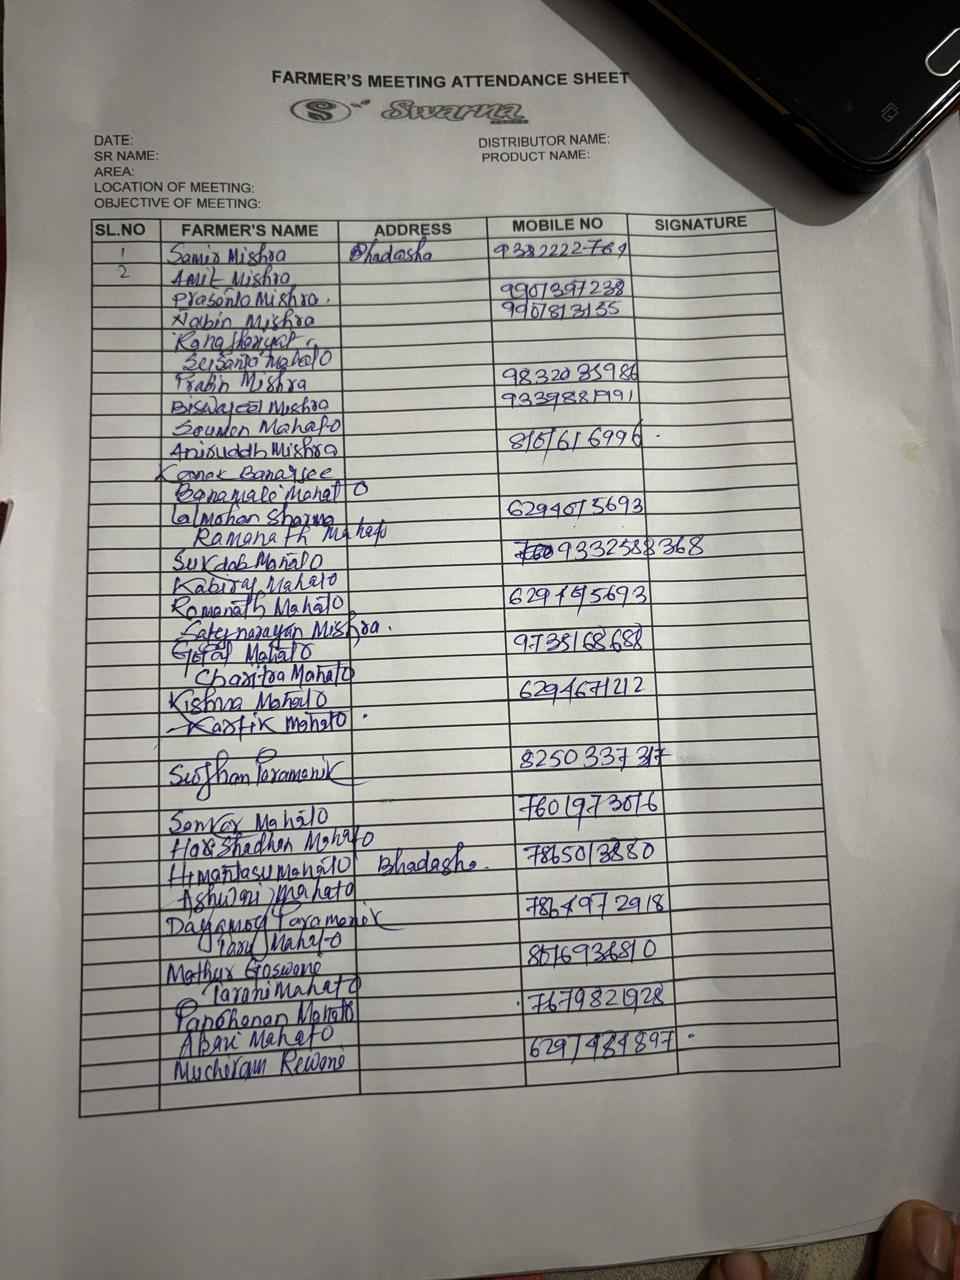 FARMER'S MEETING ATTENDANCE SHEET
S Swarna
DATE: DISTRIBUTOR NAME:
SR NAME: PRODUCT NAME:
AREA:
LOCATION OF MEETING:
OBJECTIVE OF MEETING:
SL.NO FARMER'S NAME ADDRESS MOBILE NO SIGNATURE
1 Samir Mishra Bhadasha 9382222-769
2 Amit Mishra
Prasanta Mishra. 9901397238
Nabin Mishra 9907813135
Susanta Mahato
Prabir Mishra 9832035986
Biswajeet Mishra
Soumen Mahato
Aniruddh Mishra 8101616996
Koonak Banarjee
Banamale Mahato
Lalmohan Sharma 6294015693
Ramanath Mahato
Sukdab Mahato 9332588368
Kabiraj Mahato
Ramanath Mahato
Satynarayan Mishra.
Gopal Mahato 9735168688
Charitra Mahato
Kishna Mahato 6294671212
Kartik Mahato
Paramanik 8250337317
Sonkar Mahato 7601973016
HariShadhan Mahato
Himangsu Mahato Bhadasha. 7865013880
Ashwini Mahato
Dayamoy Paramanik 7864972918
Mahato
Mathur Goswone 8516936810
Tarani Mahato
Panchanan Mahato 7679821928
Abani Mahato
Muchiram Rewone 6291484897